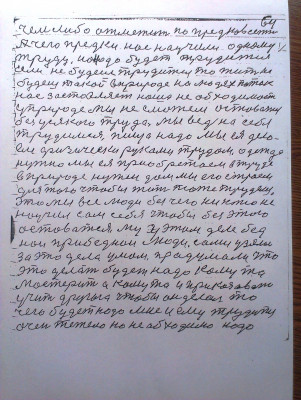 64
чем либо отметит по предковсетти
А чего предки нас научили одному
труду, надо будет трудится
если не будем трудится то жить не
будем такой в природе на людех поток
нас заставляет наше необходимост
у природе мы не сможем оставатся
без усякого труда, мы вед на себя
трудимся, пища надо мы ея дела-
ем физически руками трудом, одежда
нужно мы ея приобретаем в труде
в природе нужен дом мы его строем
для того чтобы жит тоже трудем,
это мы все люди без чего никто не
научил сам себя чтобы без этого
оставатся му У этом деле бед
ной прибедном люди, сами узяли
за это дела умом, продумали это
это делат будет надо кому та
мастерит а кому то и приказоват
учит другыга чтобы он делал то
чего будет надо мне и ему трудиту
очен тежело но необходимо надо